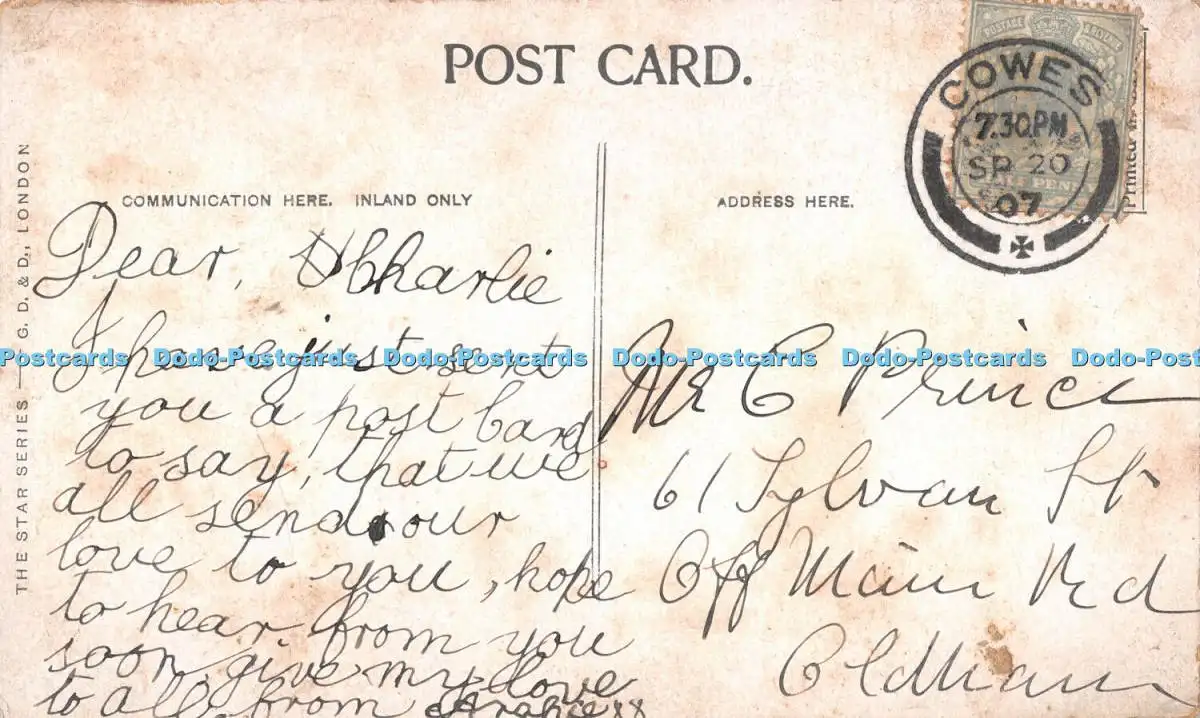 POST CARD.
POSTAGE & REVENUE
COWES
7.30PM
SP 20
07
Printed in
THE STAR SERIES — G. D. & D., LONDON
COMMUNICATION HERE. INLAND ONLY
ADDRESS HERE.
Dear, Charlie
I have just sent
you a post Card
to say, that we
all send our
love to you, hope
to hear from you
soon, give my love
to all, from
Mr C Prince
61 Sylvan St
Off Main Rd
Oldham
Postcards Dodo-Postcards Dodo-Postcards Dodo-Postcards Dodo-Postcards Dodo-Post